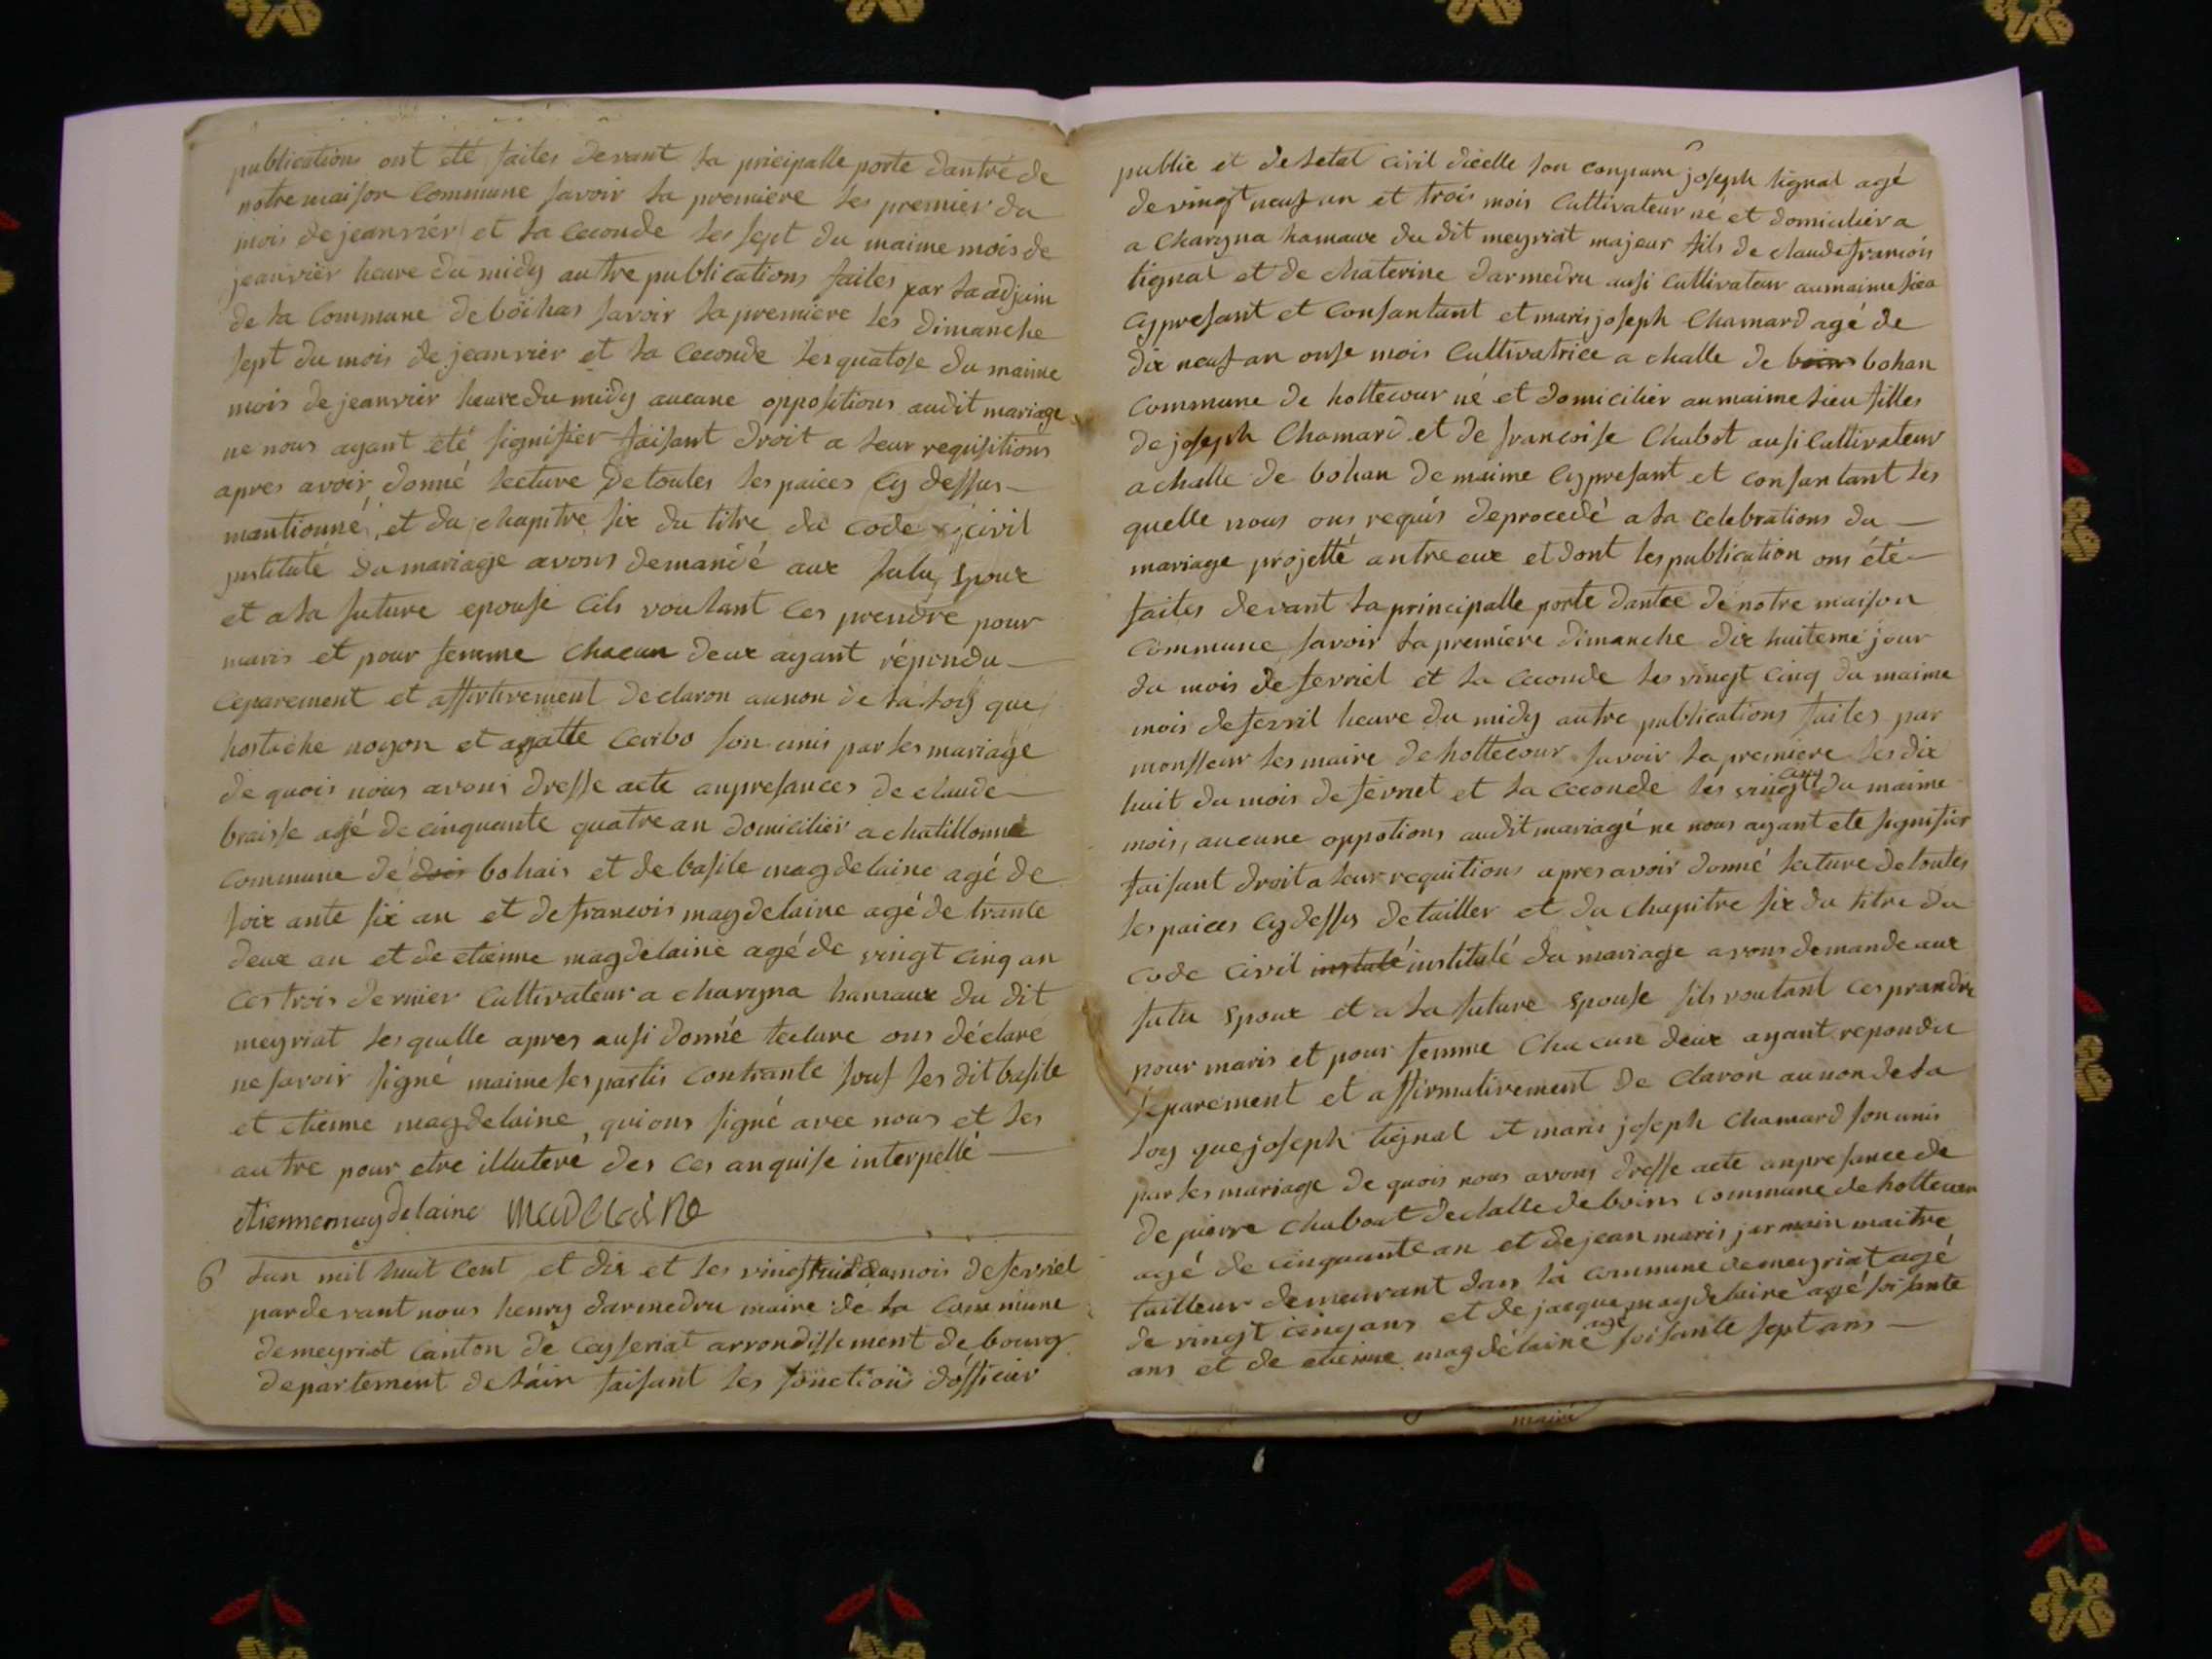 publications ont été faites devant la pricipalle porte dantré de
notre maison Commune savoir la premiere les premier du
mois de jeanviér et la ceconde les sept du maime mois de
jeanviér heure du midy autre publications faites par la adjoin
de la Commune de boihas savoir la premiere les dimanche
sept du mois de jeanvier et la ceconde les quatose du maime
mois de jeanviér heure du midy aucune oppositions audit mariage
ne nous ayant été signifier faisant droit a leur requisitions
apres avoir donné lecture De toutes les paices cy dessus
mantionné, et du chapitre six du titre du code civil
institulé du mariage avons demandé aux futu Epoux
et a la future epouse cils voulant ces prendre pour
maris et pour femme chacun deux ayant répondu
ceparement et affirtivement declaron aunon de la loy que
hostache noyon et agatte cecibo son unis par les mariage
de quois nous avons dresse acte anpresances de claude
braisse agé de cinquante quatre an domiciliér a chatillonne
commune de bohais et de basile magdelaine agé de
soix ante six an et de francois magdelaine agé de trante
deux an et de etienne magdelaine agé de vingt cinq an
ces trois dernier Cultivateur a charyna hamaux du dit
meyriat les quelle apres ausi donné lecture ons déclaré
ne savoir signé maime les partis contrante souf les dit basile
et etienne magdelaine quions signé avec nous et les
autre pour etre illuteré des ces anquise interpellé
etiennemagdelaine madelaine
6 Lan mil huit Cent et dix et les vingt huit du mois de fevriel
pardevant nous henry darmedru maire de la Commune
de meyriat canton de Ceyseriat arrondissement de bourg
departement de láin faisant les fonctions dófficier
public et de letat civil dicelle son conparu joseph tignal agé
de vingt neuf an et trois mois Cultivateur né et domiciliér a
a Charyna hamaux du dit meyriat majeur fils de claude francois
tignal et de chaterine darmedru ausi Cultivateur aumaime liea
cypresant et Consantant et maris joseph Chamard agé de
dix neuf an onse mois Cultivatrice a challe de boins bohan
Commune de hottecour né et domicilier aumaime lieu filles
de joseph Chamard et de francoise Chabot ausi Cultivateur
a challe de bohan de maime cypresant et consantant les
quelle nous ons requis deprocedé a la celebrations du
mariage projetté antre eux et dont les publication ons été
faites devant la principalle porte dantee de notre maison
Commune savoir la premiere dimanche dix huiteme jour
du mois de fevriel et la ceconde les vingt cinq du maime
mois de fevril heure du midy autre publications faites par
monsseur les maire de hottecour savoir la premiere les dix
huit du mois de fevriel et la ceconde les vingt cinq du maime
mois, aucune oppotions audit mariagé ne nous ayant eté signifiér
faisant droit a leur requitions apres avoir donné lecture de toutes
les paices cydesses detailler et du chapitre six du titre du
code civil instulé institulé du mariage avons demande aux
futu Epoux et a la future Epouse sils voulant ces prandre
pour maris et pour femme Chacune deux ayant repondu
séparement et affirmativement de claron aunon de la
loy que joseph tignal et maris joseph Chamard son unis
par les mariage de quois nous avons dresse acte anpresance de
de pierre chaboat de challe de boins commune de hottecour
agé de cinquante an et de jean maris jarmain maitre
tailleur demeurant dans la commune de meyriat agé
de vingt cinq ans et de jacque magdelaine agé soisante
ans et de etienne magdélaine agé soisante sept ans